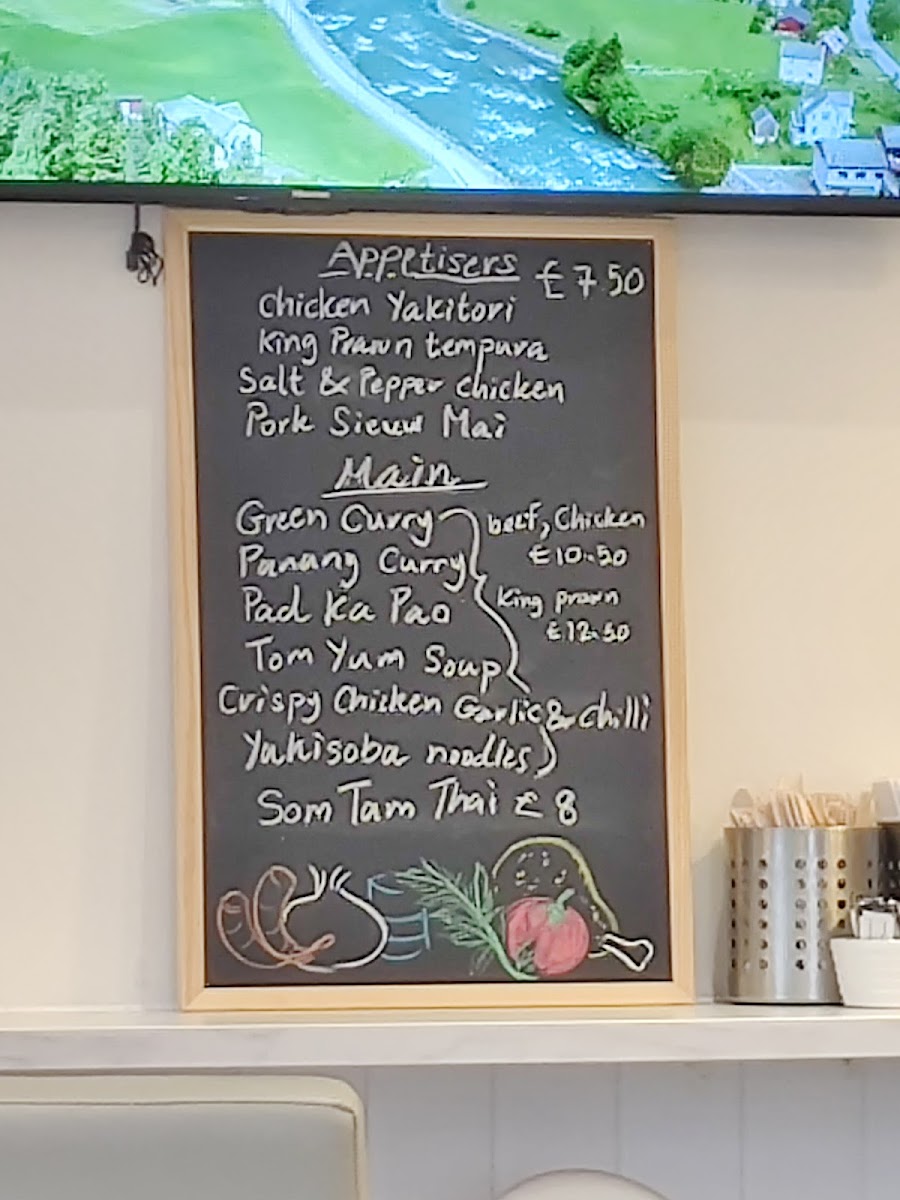 Appetisers £7 50
Chicken Yakitori
King Prawn tempura
Salt & Pepper chicken
Pork Sieuw Mai
Main
Green Curry beef, Chicken
£10.50
Panang Curry
King prawn
Pad Ka Pao
£12.50
Tom Yum Soup
Crispy Chicken Garlic & chilli
Yakisoba noodles
Som Tam Thai £8